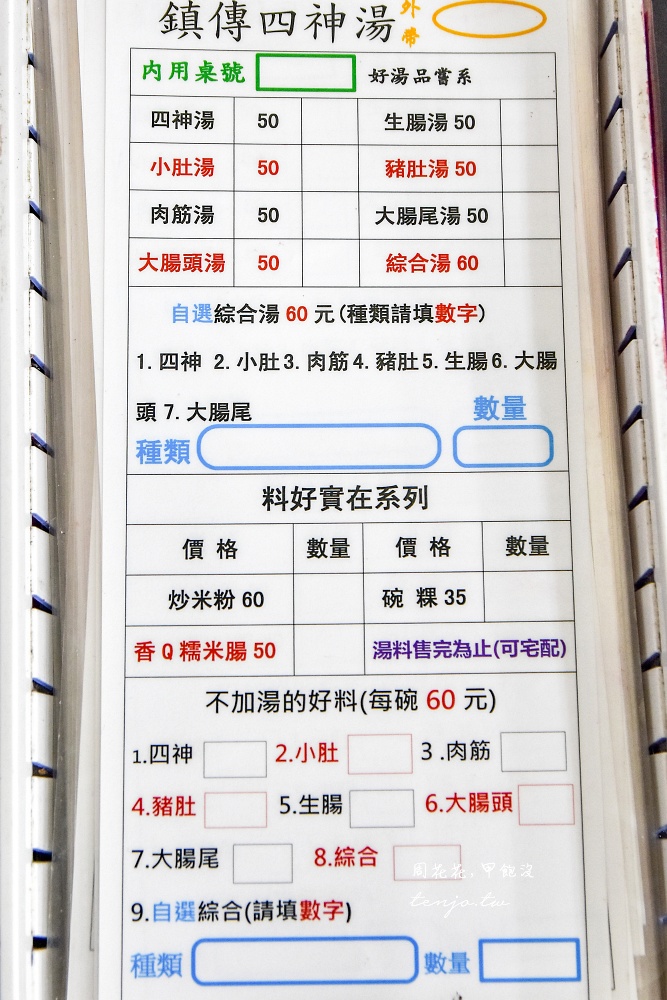 鎮傳四神湯 外帶
內用桌號 好湯品嘗系
四神湯 50 生腸湯 50
小肚湯 50 豬肚湯 50
肉筋湯 50 大腸尾湯 50
大腸頭湯 50 綜合湯 60
自選綜合湯 60 元(種類請填數字)
1. 四神 2. 小肚3. 肉筋4. 豬肚5. 生腸6. 大腸
頭 7. 大腸尾
種類 數量
料好實在系列
價 格 數量 價 格 數量
炒米粉 60 碗 粿 35
香Q糯米腸 50 湯料售完為止(可宅配)
不加湯的好料(每碗 60 元)
1.四神 2.小肚 3 .肉筋
4.豬肚 5.生腸 6.大腸頭
7.大腸尾 8.綜合
周花花,甲飽沒
tenjo.tw
9.自選綜合(請填數字)
種類 數量